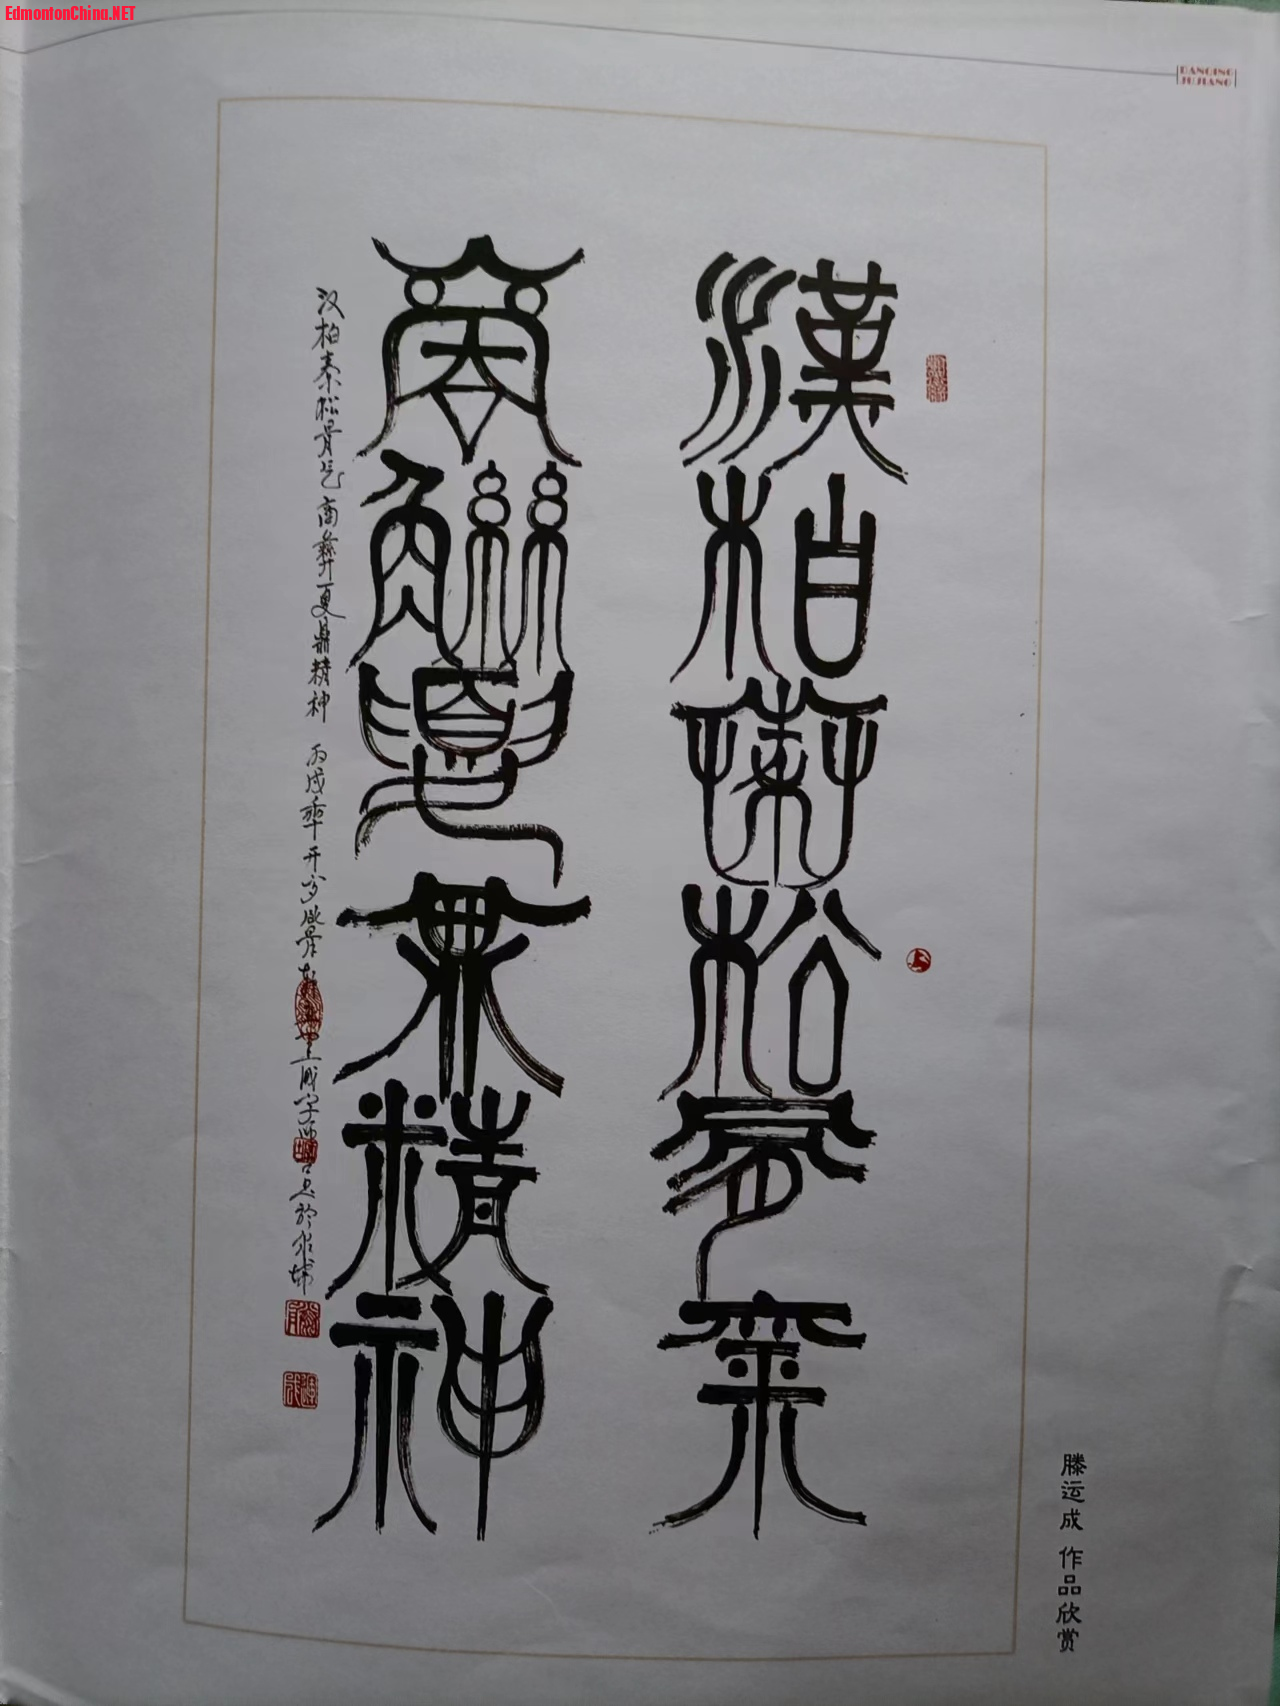 EdmontonChina.NET
DANQING
JUJIANG
漢柏秦松骨气
商彝夏鼎精神
汉柏秦松骨气商彝夏鼎精神 丙戌年
滕运成 作品欣赏